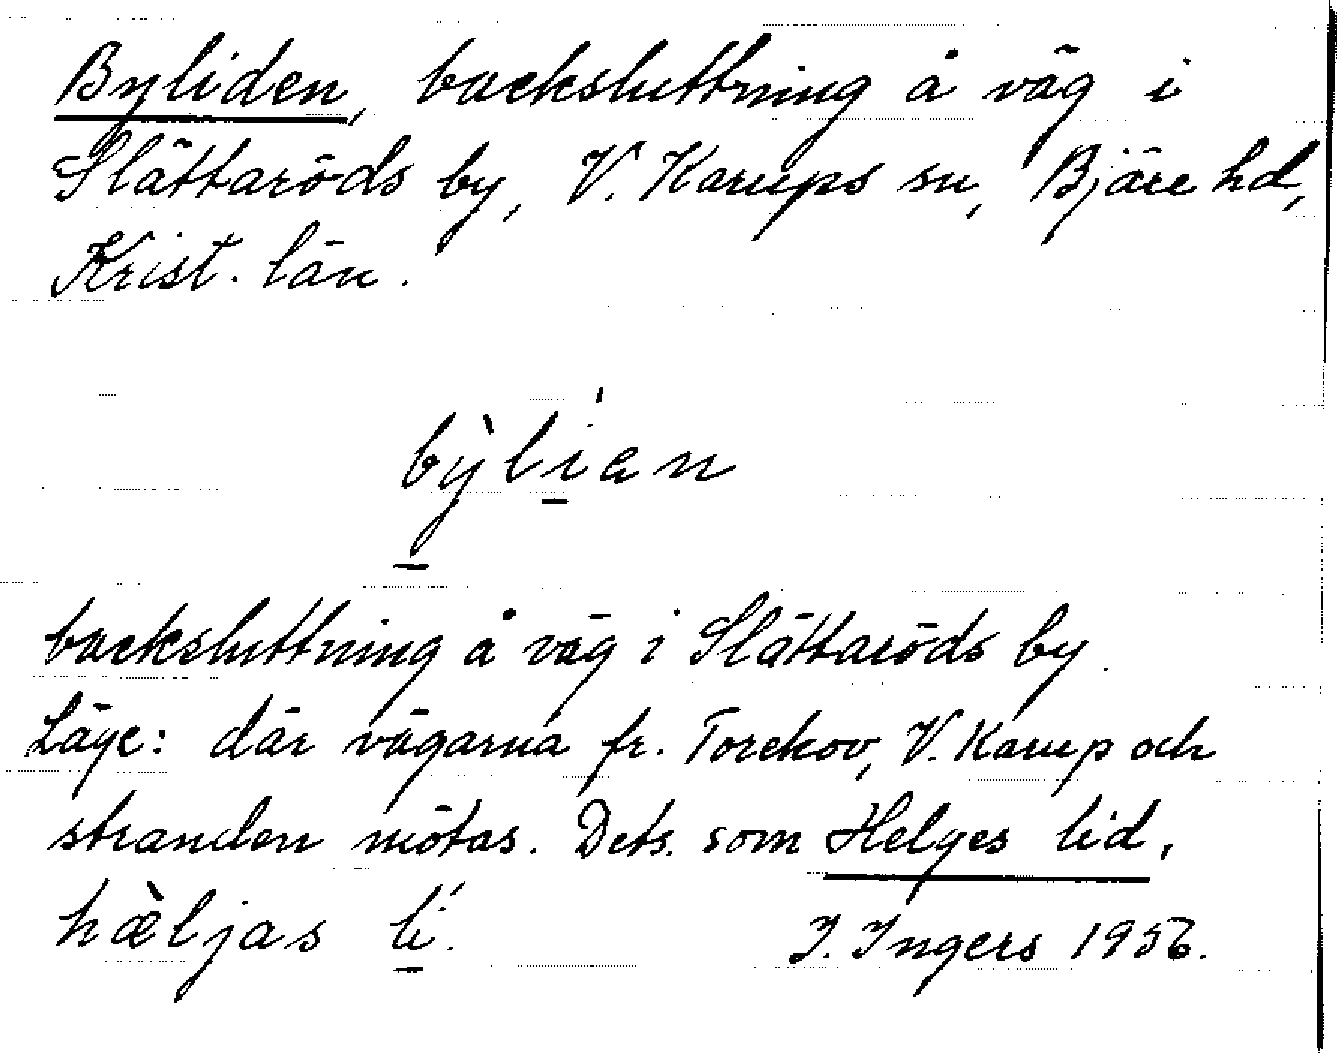 Byliden, backsluttning å väg i
Slättaröds by, V. Karups sn, Bjäre hd,
Krist. län.
bỳlíen
backsluttning å väg i Slättaröds by.
Läge: där vägarna fr. Torekov, V. Karup och
stranden mötas. Dets. som Helges lid,
hæ̀ljas lí.
I. Ingers 1956.